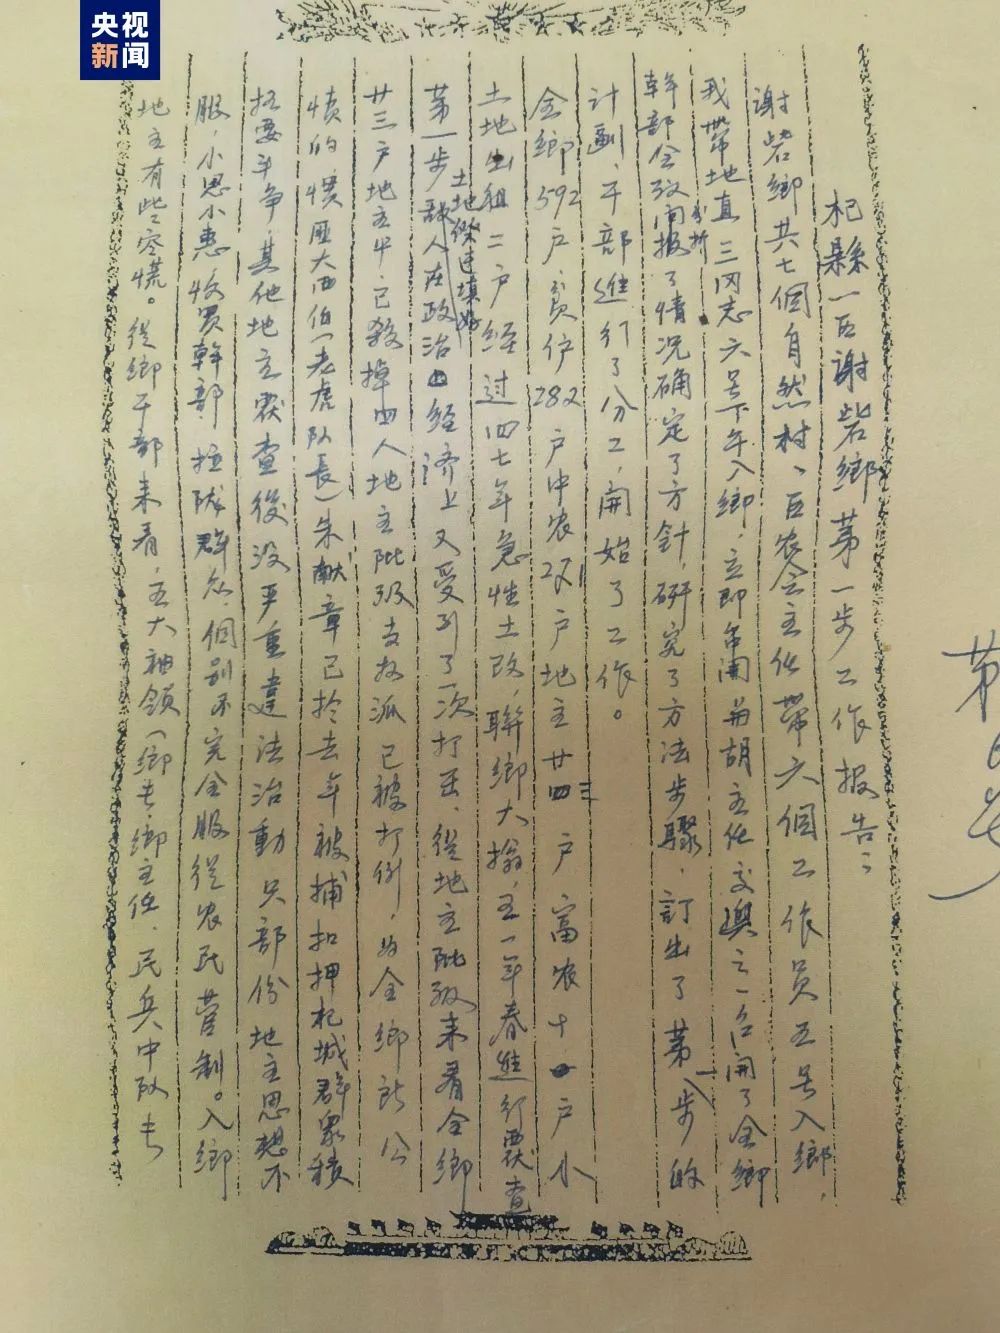 央视
新闻
杞縣一區谢砦鄉第一步工作报告：
谢砦鄉共七個自然村、區农会主任带六個工作員五号入鄉，
我带地直三同志六号下午入鄉，立即召開与胡主任交換之一召開了全鄉
幹部会議闻报了情况确定了方針，研究了方法步驟，訂出了第一步的
分析
计劃，干部進行了分工，開始了工作。
全鄉592户，贫佃282户中农271户地主廿三户富农十户小
土地出租二户经过四七年急性土改，聯鄉大搞，五一年春進行覆查
土地
第一步敵人在政治经济上又受到了一次打击，從地主阶級来看全鄉
廿三户地主中，已殺掉四人地主阶级当权派已被打倒，为全鄉所公
愤的惯匪大西伯（老虎队長）朱献章已於去年被捕扣押杞城群眾積
极要斗争，其他地主覆查後没严重違法活動只部份地主思想不
服，小恩小惠收買幹部，拉陇群众，個别不完全服從农民管制。入鄉
地主有些恐慌。從鄉干部来看，五大袖領（鄉長，鄉主任、民兵中队長